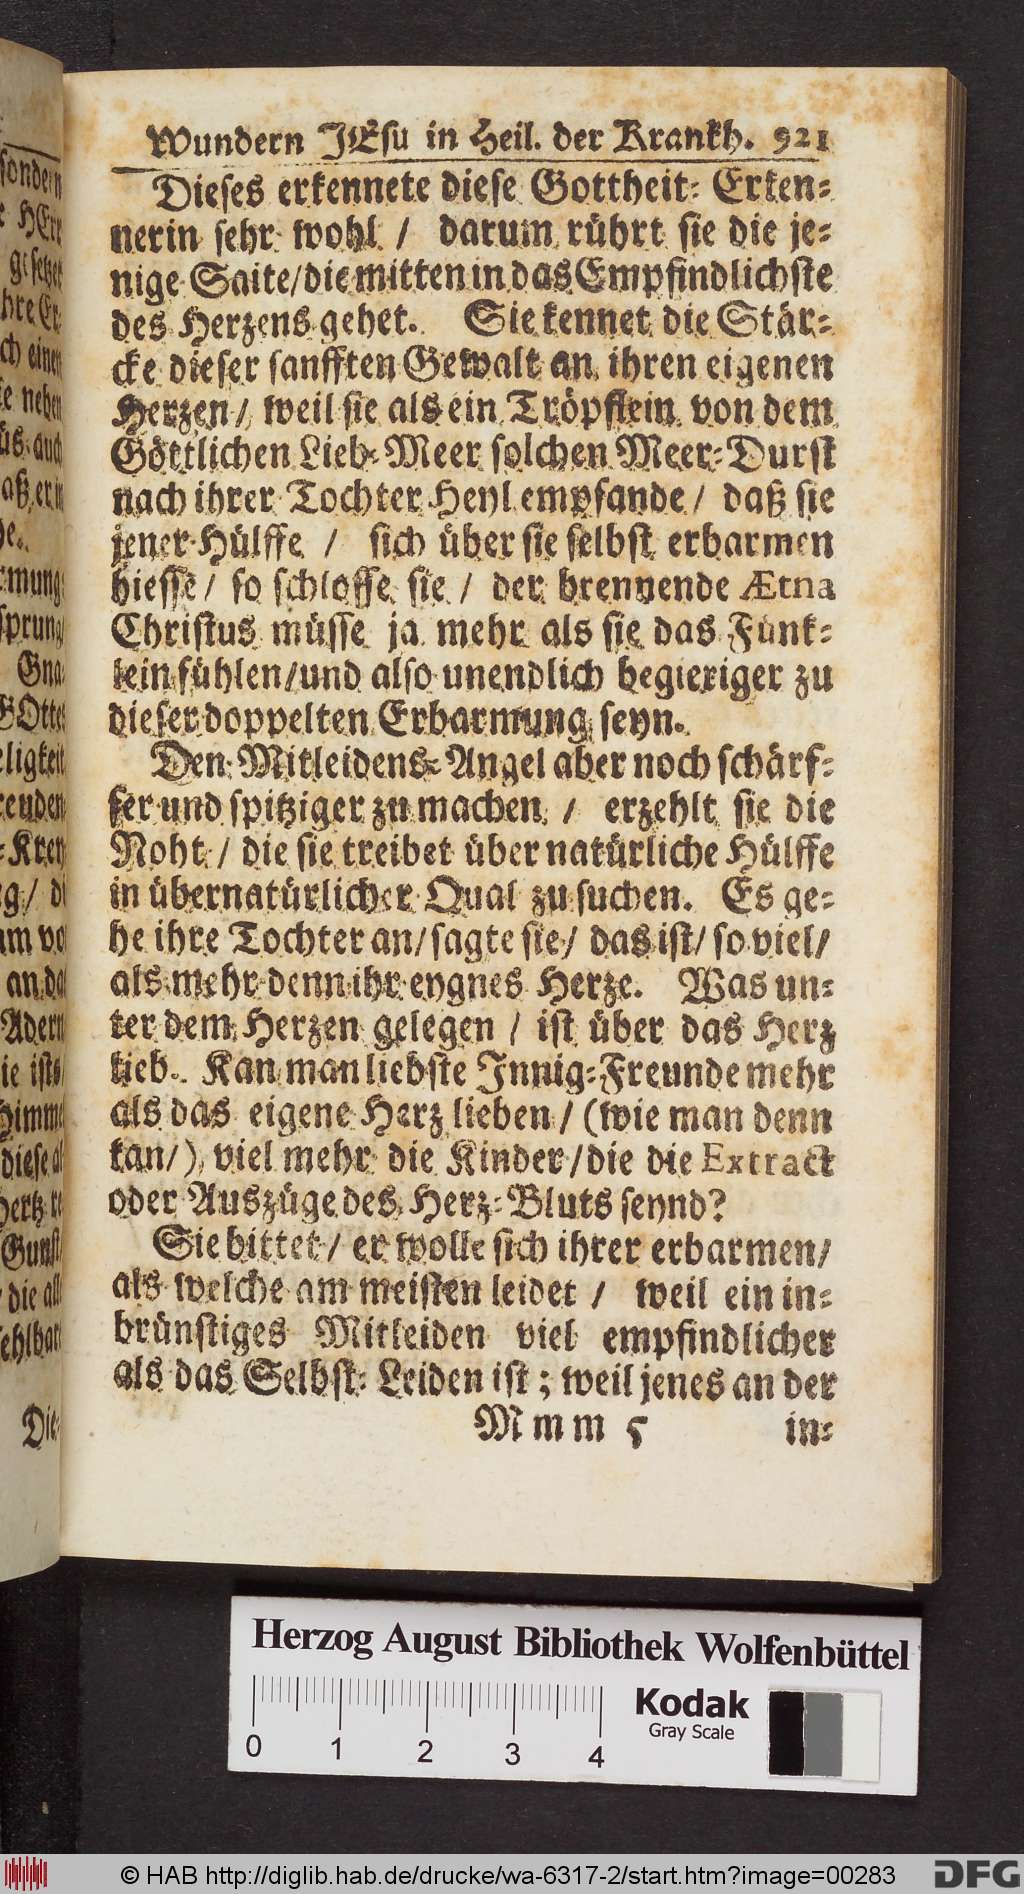 Wundern JEsu in Heil. der Krankh. 921
Dieses erkennete diese Gottheit-Erken-
nerin sehr wohl / darum rührt sie die je-
nige Saite/die mitten in das Empfindlichste
des Herzens gehet. Sie kennet die Stär-
cke dieser sanfften Gewalt an ihren eigenen
Herzen/ weil sie als ein Tröpflein von dem
Göttlichen Lieb-Meer solchen Meer-Durst
nach ihrer Tochter Heyl empfande/ daß sie
jener Hülffe / sich über sie selbst erbarmen
hiesse/ so schlosse sie / der brennende Ætna
Christus müsse ja mehr als sie das Fünk-
lein fühlen/und also unendlich begieriger zu
dieser doppelten Erbarmung seyn.
Den Mitleidens-Angel aber noch schärf-
fer und spitziger zu machen / erzehlt sie die
Noht / die sie treibet übernatürliche Hülffe
in übernatürlicher Qual zu suchen. Es ge-
he ihre Tochter an/ sagte sie/ das ist/ so viel/
als mehr denn ihr eygnes Herze. Was un-
ter dem Herzen gelegen / ist über das Herz
lieb. Kan man liebste Innig-Freunde mehr
als das eigene Herz lieben / (wie man denn
kan/) viel mehr die Kinder/die die Extract
oder Auszüge des Herz-Bluts seynd?
Sie bittet/ er wolle sich ihrer erbarmen/
als welche am meisten leidet / weil ein in-
brünstiges Mitleiden viel empfindlicher
als das Selbst-Leiden ist; weil jenes an der
Mmm 5 in-
sondern
HErr
gesetzet
ch einen
neben
auch
Gna-
GOttes
eligkeit
reuden-
Adern
ie ists
Himmel
diese
Gunst
die
Die-
Herzog August Bibliothek Wolfenbüttel
Kodak
Gray Scale
0 1 2 3 4
© HAB http://diglib.hab.de/drucke/wa-6317-2/start.htm?image=00283
DFG